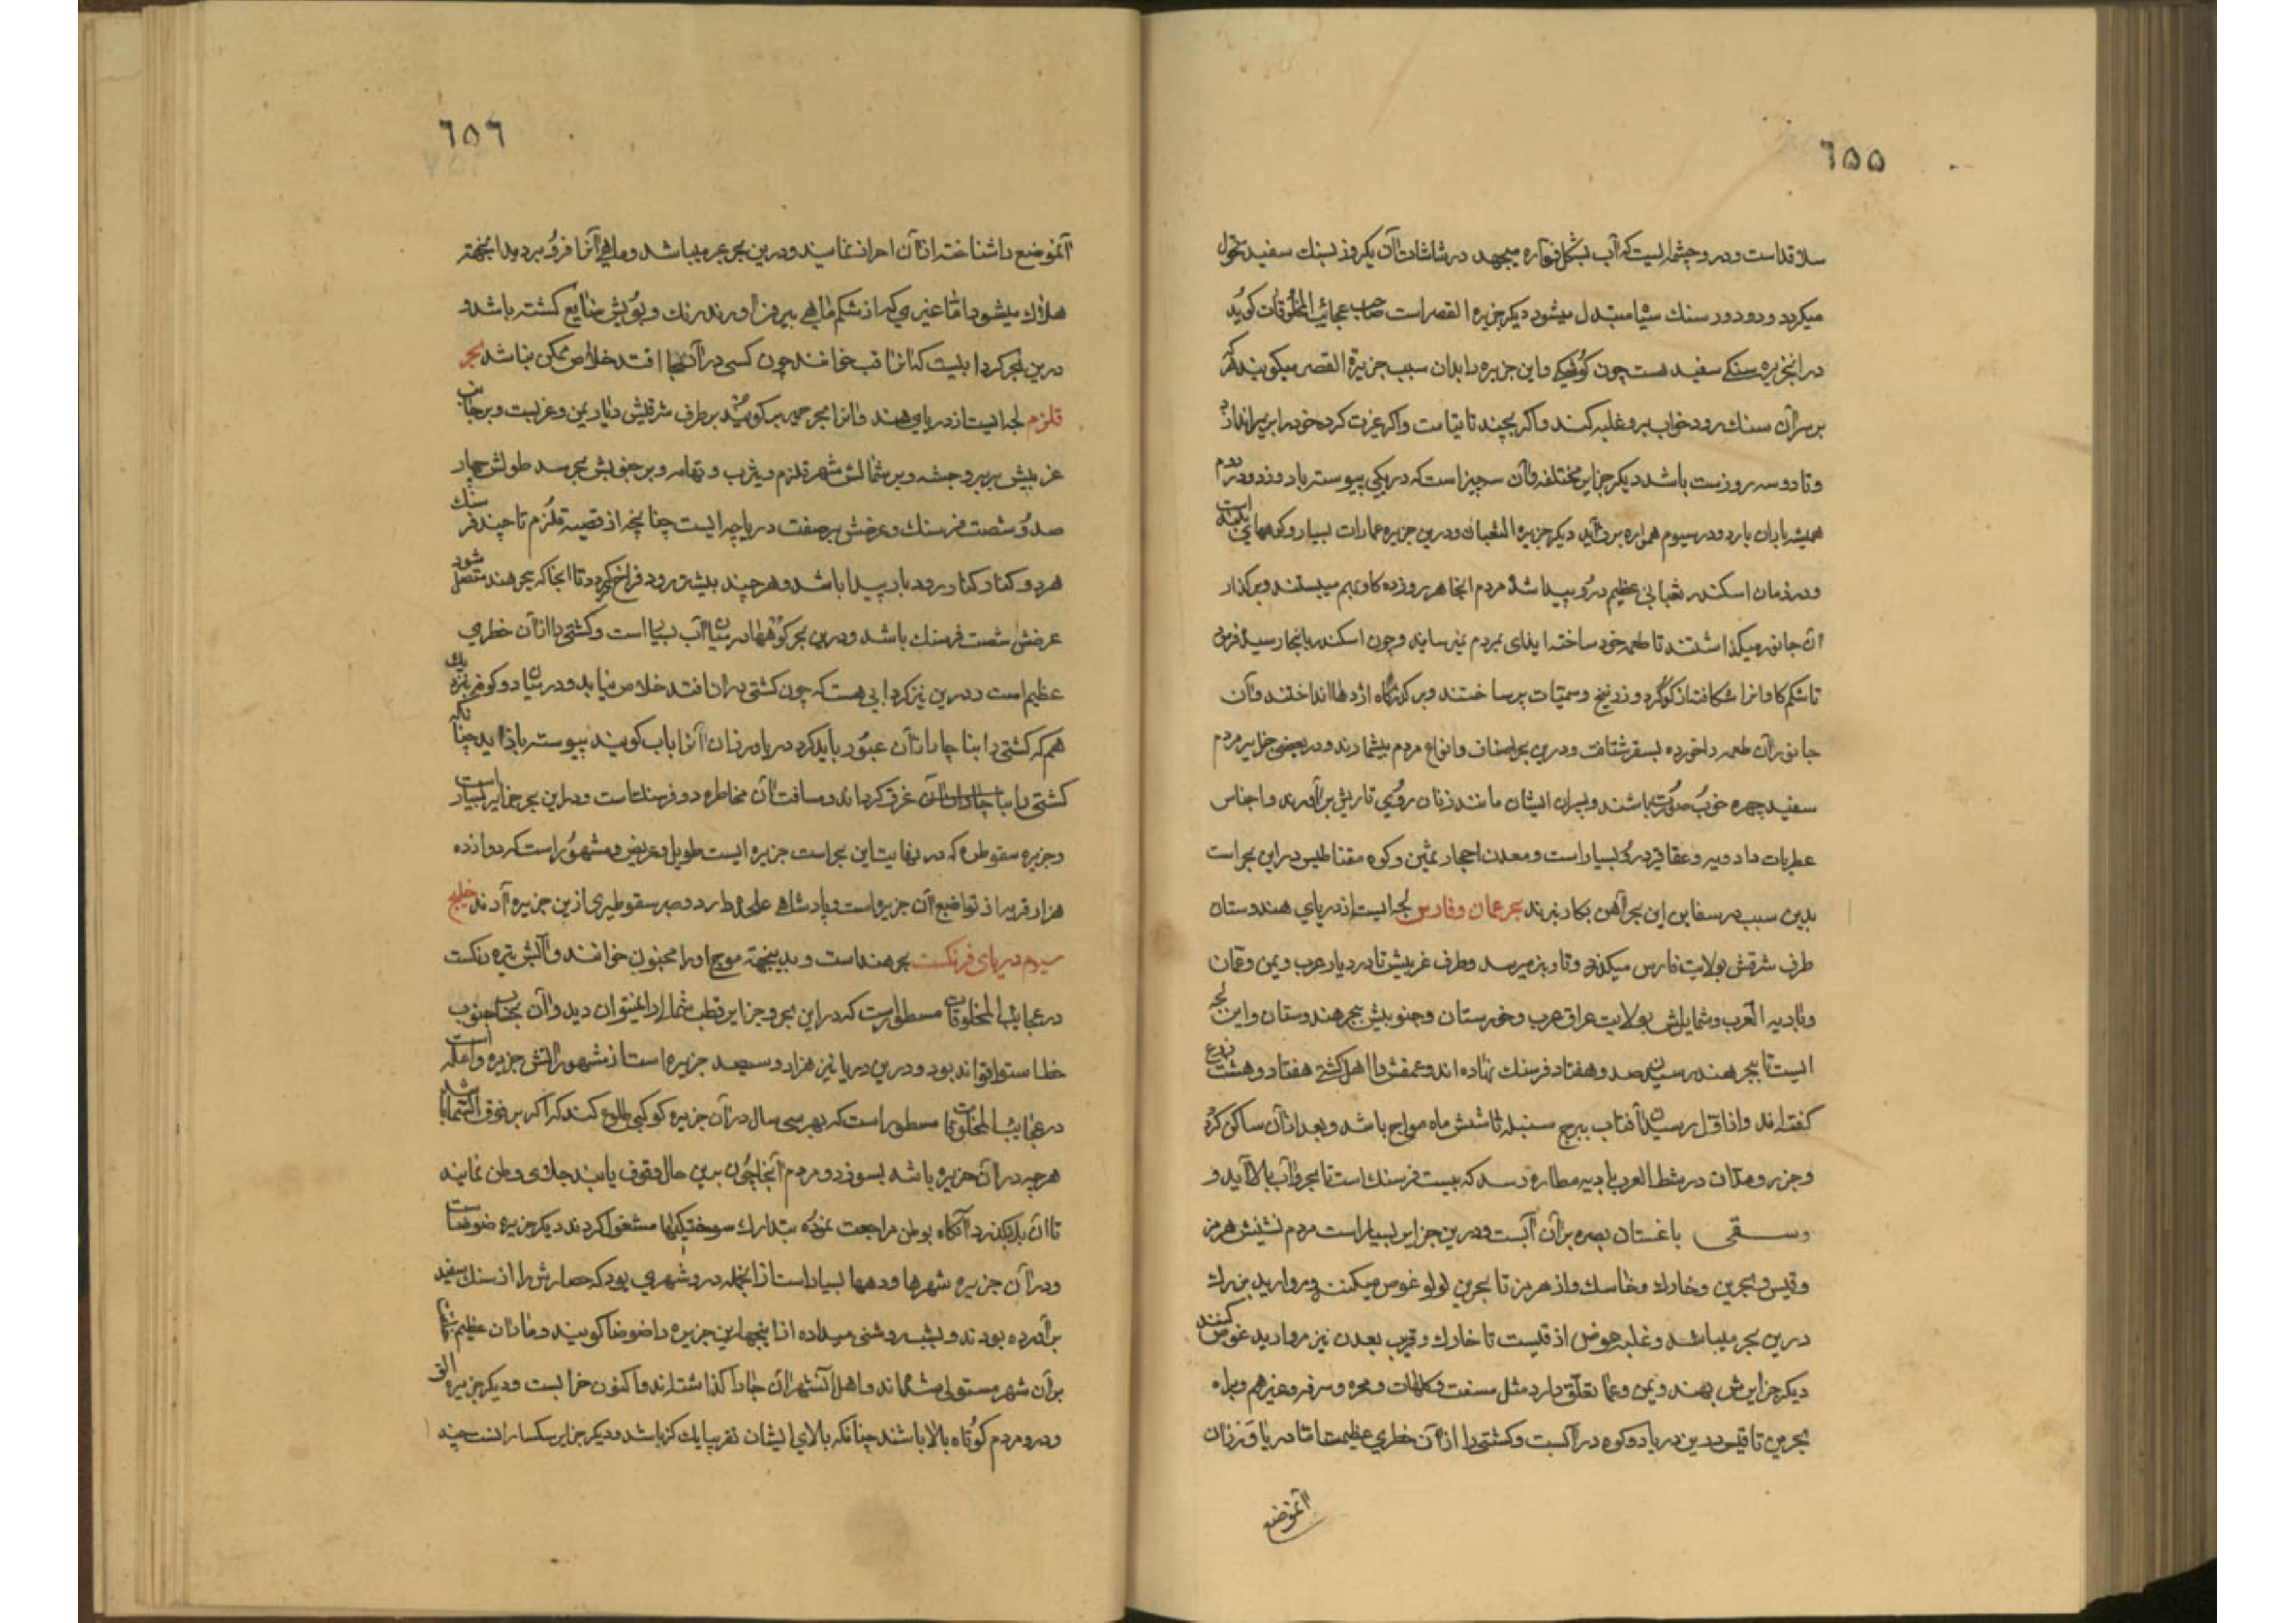 ٦٥٥
سلاقداست ودرو چشمه ایست که آب بشکل فواره میجهد در شاشات آن بکروز بسنك سفید متحول
میکردد ودر دور سنك سیا مبتدل میشود دیکر جزیره القصر است صاحب عجائب المخلوقات کوید
در انجزیره سنکی سفید هست چون کوشکی واین جزیره را بدان سبب جزیرة القصر میکویند که هر
بر سر آن سنك رود خواب برو غلبه کند واکر بخسپد تا قیامت واکر عزت کرد خود را بزیر اندازد
وتا دو سه روز مست باشد دیکر جزایر مختلفه وآن سه چیز است که در یکی پیوسته باد وزد ودر دوم
همیشه باران بارد ودر سیوم همواره برف آید دیکر جزیره الثعبان ودرین جزیره عمارات بسیار وکوههای بلند است
ودر زمان اسکندر ثعبانی عظیم درو پیدا شد مردم آنجا هر روز ده کاو بهم میبستند وبر کذار
آن جانور میکذاشتند تا طعمه خود ساخته ایذای بمردم نمیرسانید وچون اسکندر بانجا رسید فرمود
تا شکم کاوانرا شکافته از کوکرد وزرنیخ وسمیات پر ساختند وبر کذرکاه اژدها انداختند وآن
جانور آن طعمه را خورده بسقر شتافت ودرین بحر اصناف وانواع مردم بیشمارند ودر بعضی جزایر مردم
سفید چهره خوب صورت باشند وپسران ایشان مانند زنان روی تا ریش برآورند واجناس
عطریات وادویه وعقاقیر درو بسیار است ومعدن احجار ثمین وکوه مقناطیس دراین بحر است
بدین سبب در سفاین این بحر آهن بکار نبرند بحر عمان وفارس لجه ایست از دریای هندوستان
طرف شرقش بولایت فارس میکذرد وتا ... میرسد وطرف غربیش تا در دیار عرب ویمن وعمان
وبادیه العرب وشمایلش بولایت عراق عرب وخوزستان وجنوبیش ببحر هندوستان واین لجه
ایست تا ببحر هند رسیدن صد وهفتاد فرسنك نهاده اند وعمقش را اهل کشتی هفتاد وهشت زرع
کفته اند واز اول رسیدن آفتاب ببرج سنبله تا شش ماه مواج باشد وبعد از آن ساکن کردد
وجزر ومد آن در شط العرب بادیه مطاره رسد که بیست فرسنك است تا بحر وآب بالا آید و
وسقی باغستان بصره بر آن آبست ودرین جزایر بسیار است مردم نشینش هرمز
وقیس وبحرین وخارك وخاسك واز هرمز تا بحرین لولو غوص میکنند ومروارید بزرك
درین بحر میباشد وغلبه غوص از قیست تا خارك وقریب بعدن نیز مروارید غوص کنند
دیکر جزایرش بهند ویمن وعما تعلق دارد مثل ... وغیرهم وبراه
بحرین تا قیس درین دریا دو کوه در آبست وکشتی را از آن خطری عظیمست اما دریاورزان
آنموضع
٦٥٦
آنموضع را شناخته از آن احراز نمایند ودرین بحر عنبر میباشد وماهی آنرا فرو برد بدانجهته
هلاك میشود اما عنبری که از شکم ماهی بیرون آورند رنك وبویش ضایع کشته باشد و
درین بحر کردابیست که آنرا قب خوانند چون کسی در آن جا افتد خلاص ممکن نباشد بحر
قلزم لجه ایست از دریای هند وآنرا بحر حمیر میکویند بر طرف شرقیش دیار یمن وعربست وبر جانب
غربیش بربر وحبشه وبر شمالش شهر قلزم ویثرب وتهامه وبر جنوبش بحر رسد طولش چهار
صد وشصت فرسنك وعرضش بر صفت دریاچه ایست چنانچه از قصبه قلزم تا چند فرسنك
هردو کنار کنار رودبار پیدا باشد وهر چند بیشتر رود فراخ کردد تا انجا که ببحر هند متصل شود
عرضش شصت فرسنك باشد ودرین بحر کوهها در میان آب بسیار است وکشتی را از آن خطری
عظیم است ودرین نیز کردابی هست که چون کشتی دران افتد خلاص نیابد ودر میان دو کوه نزدیك
هم که کشتی را بناچار از آن عبور باید کرد دریاورزان آنرا باب کویند پیوسته باد آید چنانکه
کشتی را ... غرق کرداند ومسافت آن مخاطره دو فرسنك است ودراین بحر جزایر بسیار است
وجزیره سقوطره که در نهایت این بحر است جزیره ایست طویل وعریض ومشهور است که دوازده
هزار قریه از تواضع آن جزیره است وپادشاهی علیحده دارد وصبر سقوطیری ازین جزیره آرند خلیج
سیوم دریای فرنکست بحر هند است وبدینجهته موج اورا مجنون خوانند وآبش تیره رنکست
در عجایب المخلوقات مسطور است که دراین بحر وجزایر قطب شمال را نمیتوان دید وآن بجانب جنوب
خط استوا تواند بود ودرین دریا نیز هزار وسیصد جزیره است از مشهوراتش جزیره واعله است
در عجایب المخلوقات مسطور است که بهر سی سال در آن جزیره کوکبی طلوع کند که اکر بر فوق السماء باشد
هرچه در آن جزیره باشد بسوزد ومردم آنجا چون برین حال وقوف یابند جلای وطن نمایند
تا آن بکذرد آنکاه بوطن مراجعت نموده بتدارك سوختکیها مشغول کردند دیکر جزیره ضوضاست
ودر آن جزیره شهرها ودهها بسیار است از انجمله درو شهری بود که حصارش را از سنك سفید
برآورده بودند وبشب روشنی میداده از اینجهة این جزیره را ضوضا کویند وماران عظیم
بر آن شهر مستولی شده اند واهل آنشهر آن جا را کذاشته اند واکنون خرابست ودیکر جزیره القر
ودرو مردم کوتاه بالا باشند چنانکه بالای ایشان تقریبا یك کز باشد ودیکر جزایر سکساران